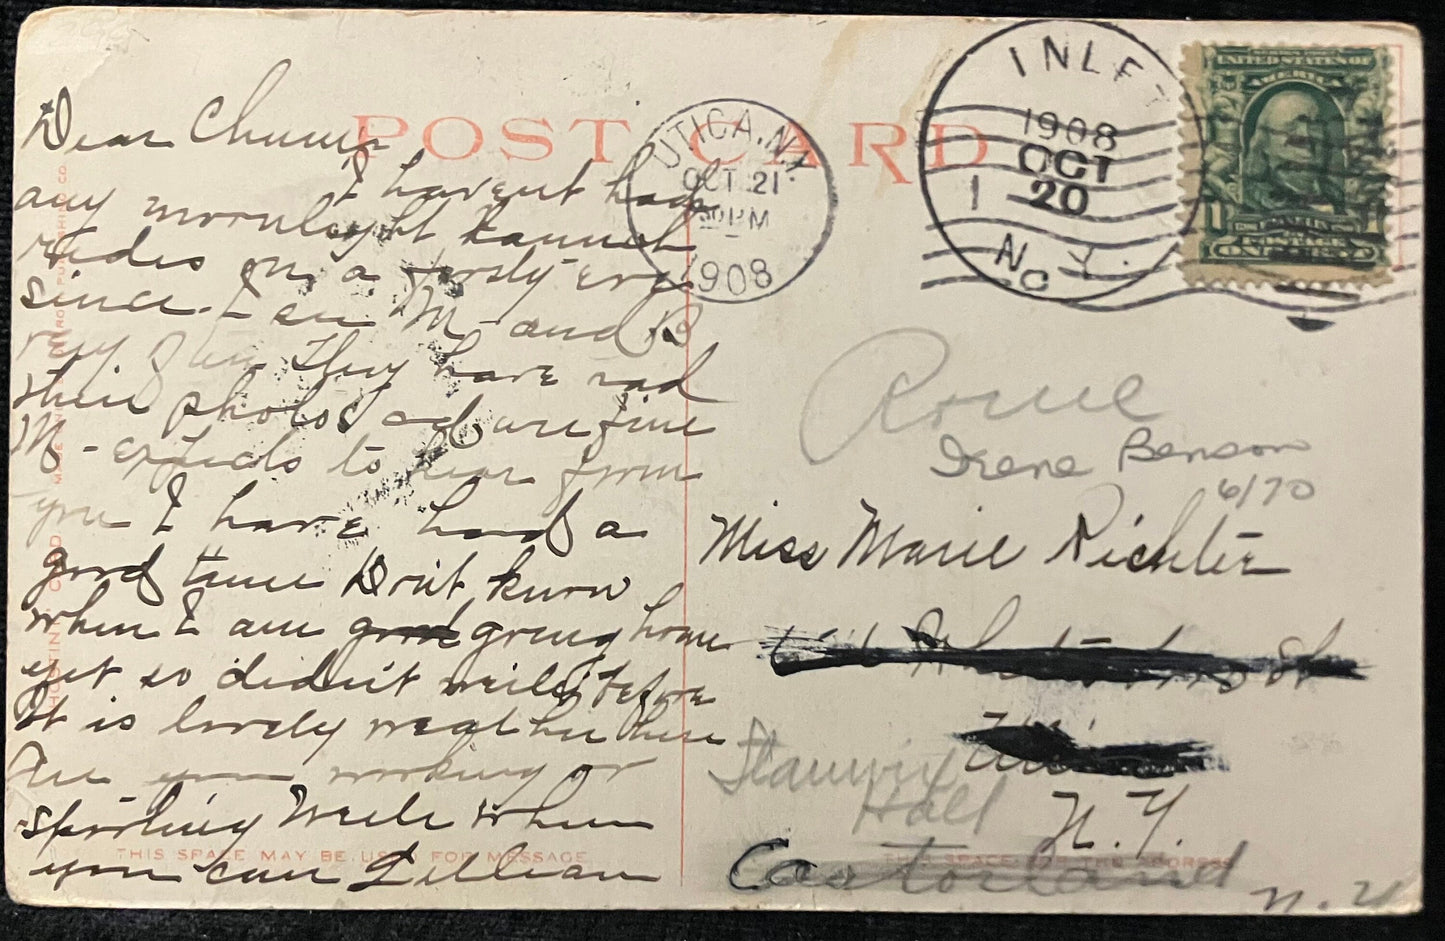 POST CARD
Dear Chum
I havent had
any moonlight
rides on a
since I M- and B
They have had
their photos are fine
M- expects to hear from
you I have had a
good time Don't know
when I am going home
yet so didn't write before
It is lovely weather here
Are you working or
sporting Write when
you can Lillian
THIS SPACE MAY BE USED FOR MESSAGE
UTICA, N.Y.
OCT 21
30 PM
1908
INLET
1908
OCT
20
1
N. Y.
UNITED STATES OF
AMERICA
1 1
POSTAGE
ONE
Rome
Irene Benson
6/70
Miss Marie Richter
St
Hall
N. Y.
Castorland
N. Y.
THIS SPACE FOR THE ADDRESS